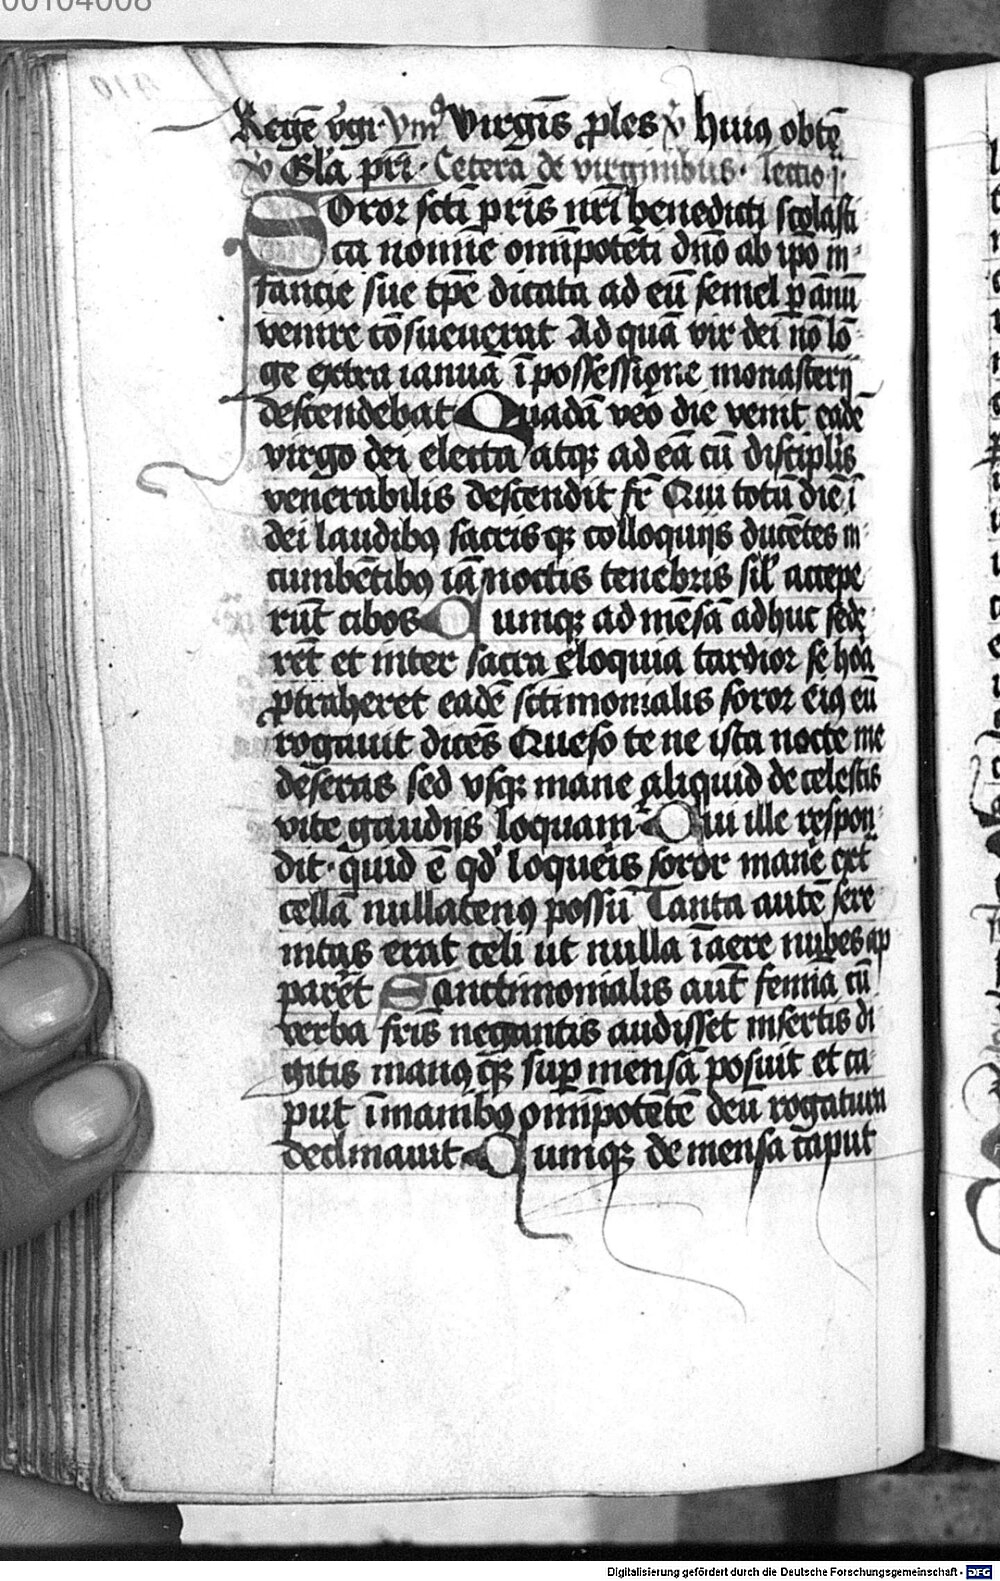 00104008
Regē vgī· Ymꝰ Virgīs ꝓles ℣ huiꝯ obtē
℣ Gła pr̄i· Cetera de virginibus· lectio j·
Soror sct̄i pr̄is nr̄i benedicti scolasti
ca nomīe omīpotēti dn̄o ab ip̄o in-
fancie sue tp̄e dicata ad eū semel ꝑ annū
venire cōsueuerat Ad quā vir dei nō lō
ge extra ianuā ī possessione monasterij
descendebat Quadā vēo die venit eadē
virgo dei electa atqꝫ ad eā cū discipl̄is
venerabilis descendit fr̄ Qui totū diē ī
dei laudibꝯ sacris qꝫ colloquijs ducētes in
cumbētibꝯ iā noctis tenebris sił accepe
rūt cibos Cumqꝫ ad mēsā adhuc sede
rēt et inter sacra eloquia tardior se hōa
ꝓtraheret eadē sct̄imonialis soror eiꝯ eū
rogauit dicēs Queso te ne ista nocte me
deseras sed vsqꝫ mane aliquid de celestis
vite gaudijs loquam̄ Cui ille respon-
dit· quid ē qđ loqueris soror manē ext̄
cellā nullatenꝯ possū Tanta autē sere
nitas erat celi ut nulla ī aere nubes ap
parēt Sanctimonialis aut̄ femīa cū
verba fr̄is negantis audisset insertis di
gitis manꝯ qꝫ suꝑ mensā posuit et ca
put ī manibꝯ omīpotētē deū rogatum
declinauit Cumqꝫ de mensa caput
Digitalisierung gefördert durch die Deutsche Forschungsgemeinschaft - DFG